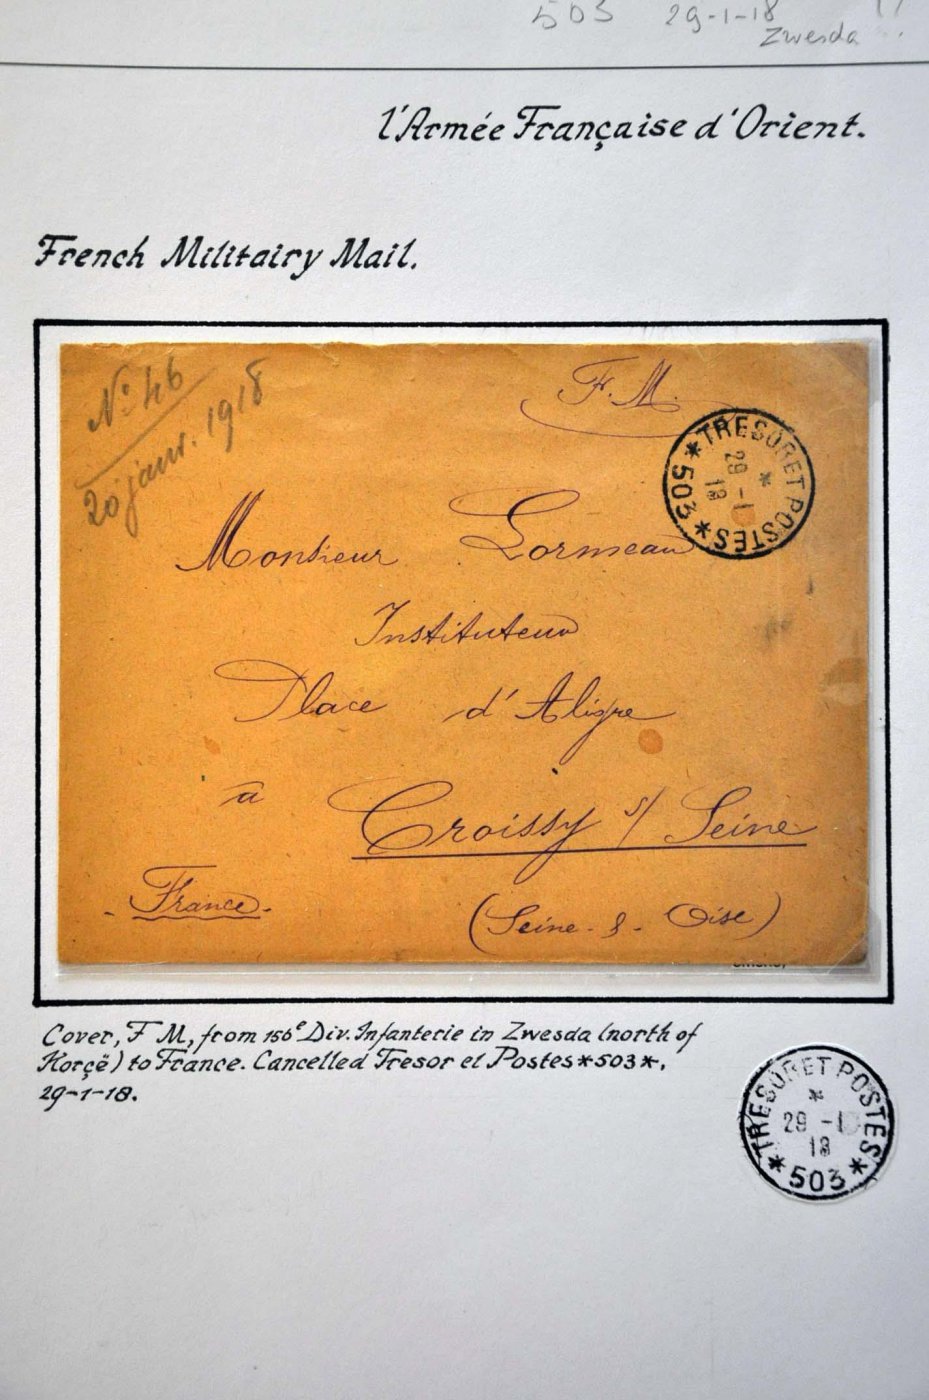 503 29-1-18
Zwesda
l'Armée Française d'Orient.
French Militairy Mail.
Nº 46
20 janv. 1918
F. M.
TRESOR ET POSTES
* 29 -1 18
*503*
Monsieur Lormeau
Instituteur
Place d'Aligre
à Croissy s/ Seine
- France -
(Seine - & - Oise)
Cover, F M, from 156e Div. Infanterie in Zwesda (north of
Korçë) to France. Cancelled Tresor et Postes *503*,
29-1-18.
TRESOR ET POSTES
*
29 -1
18
*503*